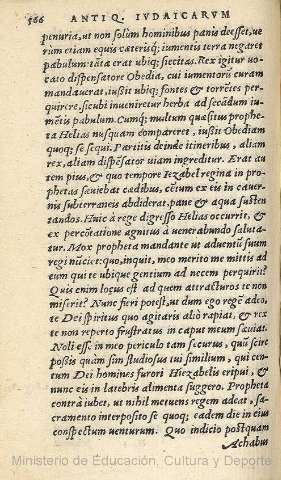 566 ANTIQ. IVDAICARVM
penuria, ut non solùm hominibus panis deesset, ue
rùm etiam equis cæterisq; iumentis terra negaret
pabulum: tāta erat ubiq; siccitas. Rex igitur uo-
cato dispensatore Obedia, cui iumentorū curam
mandauerat, iussit ubiq; fontes & torrētes per-
quirere, sicubi inueniretur herba ad secādum iu-
mētis pabulum. Cumq; multum quæsitus prophe-
ta Helias nusquam compareret, iußit Obediam
quoq; se sequi. Partitis deinde itineribus, aliam
rex, aliam dispēsator uiam ingreditur. Erat au
tem pius, & quo tempore Iezabel regina in pro-
phetas sæuiebat cædibus, cētum ex eis in cauer-
nis subterraneis abdiderat, pane & aqua susten
tandos. Huic à rege digresso Helias occurrit, &
ex percōtatione agnitus a uenerabundo saluta-
tur. Mox propheta mandante ut aduentū suum
regi nūciet: quo, inquit, meo merito me mittis ad
eum qui te ubique gentium ad necem perquirit?
Quis enim locus est ad quem attracturos te non
miserit? Nunc fieri potest, ut dum ego regē adeo,
te Dei spiritus quo agitaris aliò rapiat, & rex
te non reperto frustratus in caput meum sæuiat.
Noli esse in meo periculo tam securus, quū scire
possis quàm sim studiosus tui similium, qui cen-
tum Dei homines furori Hiezabelis eripui, &
nunc eis in latebris alimenta suggero. Propheta
contrà iubet, ut nihil metuens regem adeat, sa-
cramento interposito se quoq; eadem die in eius
conspectum uenturum. Quo indicio postquam
Achabus
Ministerio de Educación, Cultura y Deporte